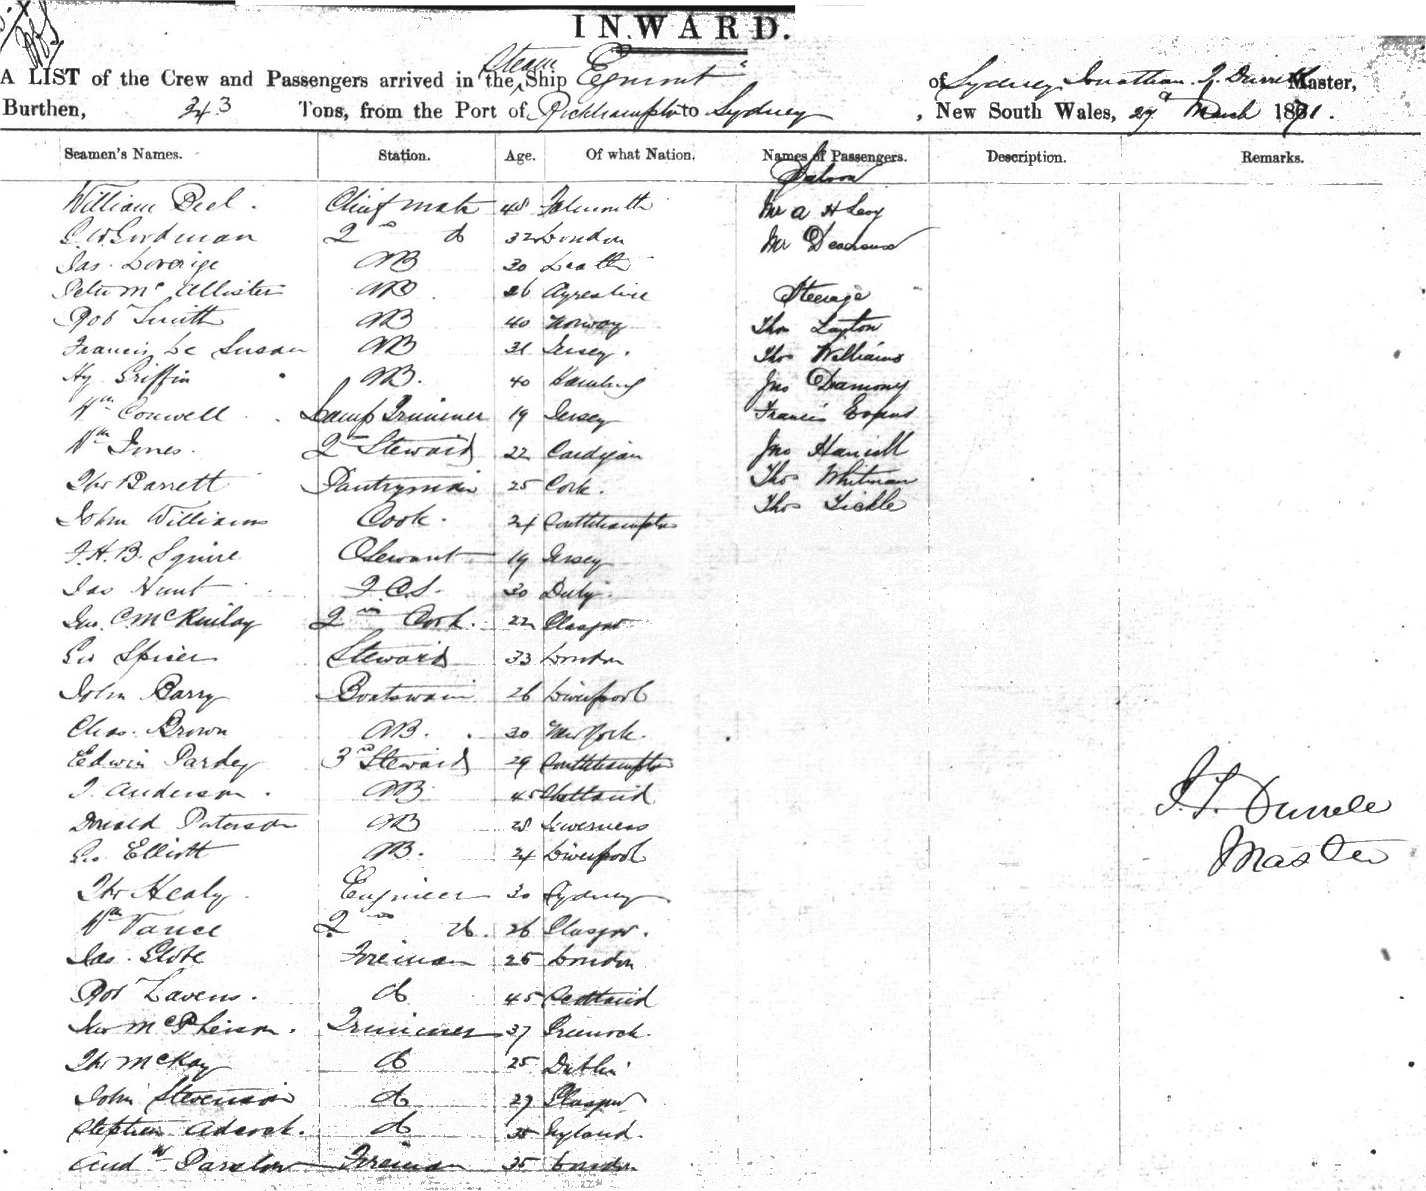 INWARD.
A LIST of the Crew and Passengers arrived in the Steam Ship "Egmont" of Sydney, Jonathan Master,
Burthen, 243 Tons, from the Port of to Sydney, New South Wales, 29th March 1871.
Seamen's Names. Station. Age. Of what Nation. Names of Passengers. Description. Remarks.
Saloon
William Peel. Chief mate 48 Falmouth Mr A H Levy
Goodman 2nd do 32 London Mr
Jas. Loverige AB 30 Leith
Peter McAllister AB 26 Ayreshire Steerage
Robt Smith AB 40 Norway Thos Layton
Francis Le AB 31 Jersey. Thos Williams
Hy Griffin AB. 40 Hamburg Jno
Wm Conwell Lamp Trimmer 19 Jersey Francis Evans
Wm Jones. 2nd Steward 22 Cardigan Jno
Thos Barrett Pantryman 25 Cork. Thos Whitman
John Williams Cook. 24 Southhampton Thos Tickle
F.H.B. Squire 19 Jersey
Jas Hunt 30
Jno. C. McKinlay 2nd Cook. 22 Glasgow
Geo Spicer Steward 33 London
John Barry Boatswain 26 Liverpool
Chas. Brown AB. 30 New York.
Edwin Pardey 3rd Steward 29 Southhampton
J. Anderson. AB 45 Shetland
Donald Paterson AB 28 Inverness
Geo Elliott AB. 24 Liverpool
J. L. Durrell
Master
Thos Healy. Engineer 30 Sydney
Wm Vance 2nd do. 26 Glasgow.
Jas. Fireman 25 London
Robt Lavens. do 45 Scotland
McPherson. Trimmer 37 Greenock
Thos McKay do 25 Dublin
John Stevenson do 27 Glasgow
Stephen Adcock. do 35
Andw Parslow Fireman 35 London